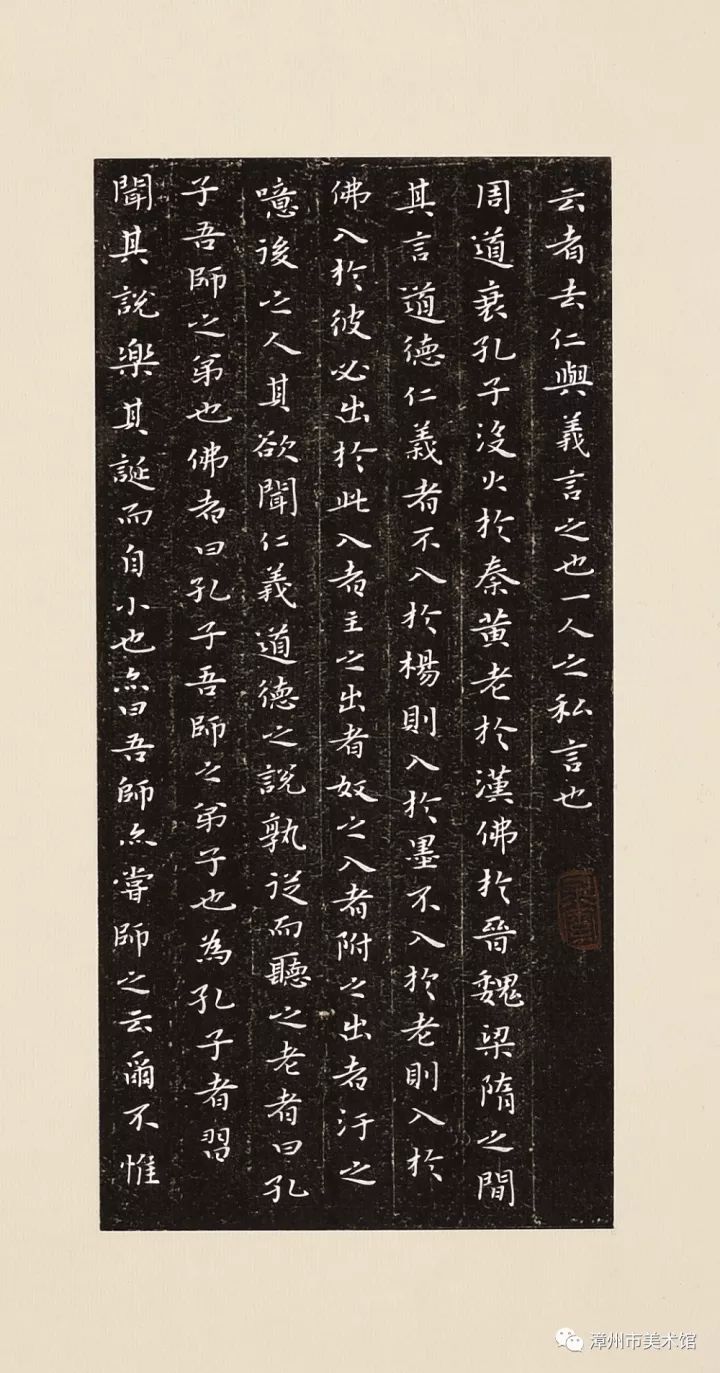 云者去仁與義言之也一人之私言也
周道衰孔子沒火於秦黃老於漢佛於晉魏梁隋之間
其言道德仁義者不入於楊則入於墨不入於老則入於
佛入於彼必出於此入者主之出者奴之入者附之出者汙之
噫後之人其欲聞仁義道德之說孰從而聽之老者曰孔
子吾師之弟也佛者曰孔子吾師之弟子也為孔子者習
聞其說樂其誕而自小也亦曰吾師亦嘗師之云爾不惟
漳州市美术馆